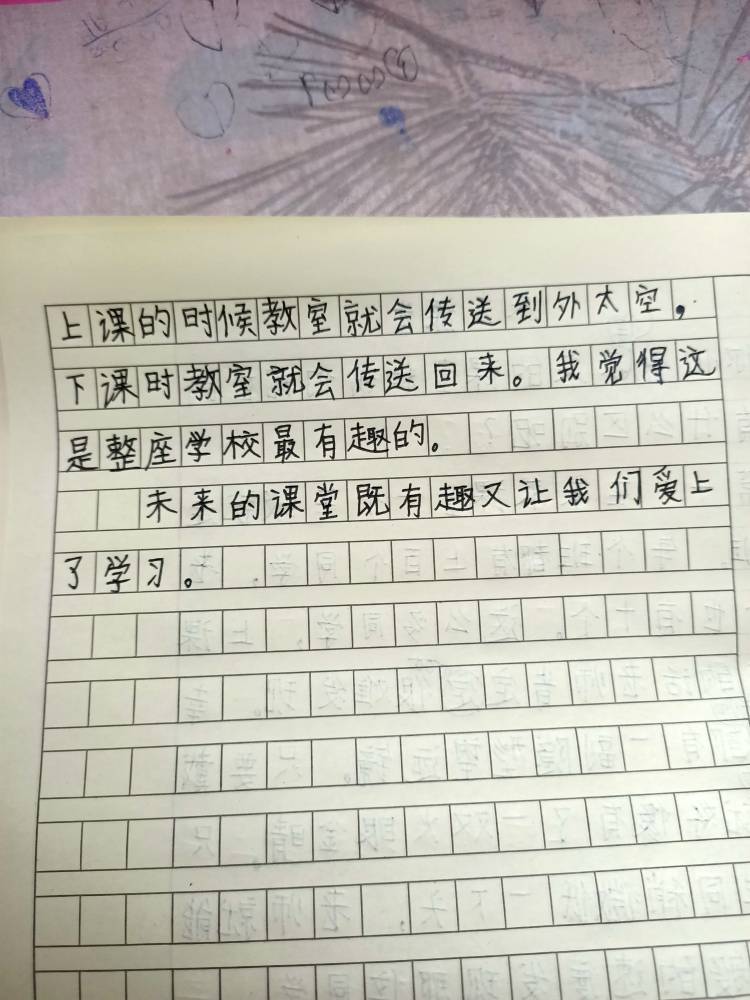 上课的时候教室就会传送到外太空，
下课时教室就会传送回来。我觉得这
是整座学校最有趣的。
未来的课堂既有趣又让我们爱上
了学习。